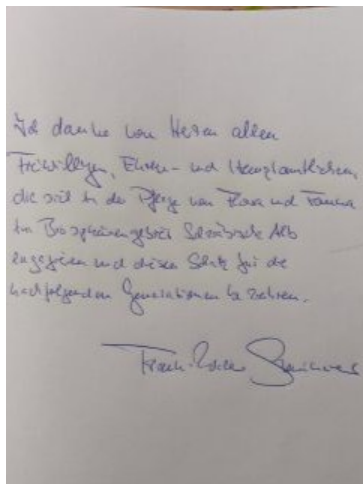 Ich danke von Herzen allen
Freiwilligen, Ehren- und Hauptamtlichen,
die sich in der Pflege von Flora und Fauna
im Biosphärengebiet Schwäbische Alb
engagieren und diesen Schatz für die
nachfolgenden Generationen bewahren.
Frank-Walter Steinmeier